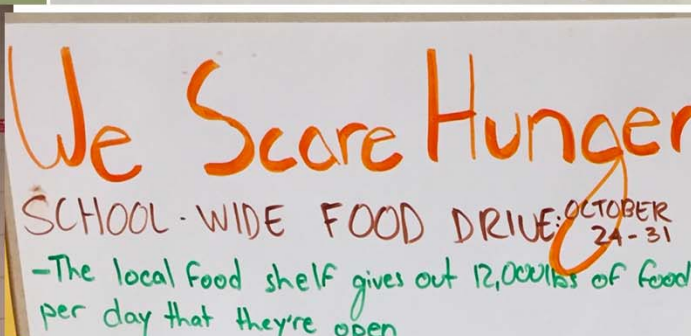 We Scare Hunger
SCHOOL-WIDE FOOD DRIVE: OCTOBER
24-31
-The local food shelf gives out 12,000lbs of food
per day that they're open